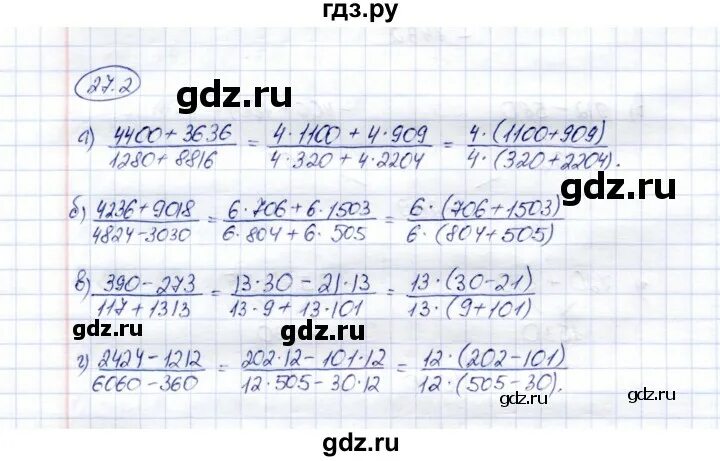 гдз.ру
27.2
gdz.ru
а) (4400+3636)/(1280+8816) = (4·1100+4·909)/(4·320+4·2204) = (4·(1100+909))/(4·(320+2204)).
gdz.ru
б) (4236+9018)/(4824-3030) = (6·706+6·1503)/(6·804+6·505) = (6·(706+1503))/(6·(804+505))
в) (390-273)/(117+1313) = (13·30-21·13)/(13·9+13·101) = (13·(30-21))/(13·(9+101))
gdz.ru
gdz.ru
г) (2424-1212)/(6060-360) = (202·12-101·12)/(12·505-30·12) = (12·(202-101))/(12·(505-30)).
gdz.ru
gdz.ru
gdz.ru